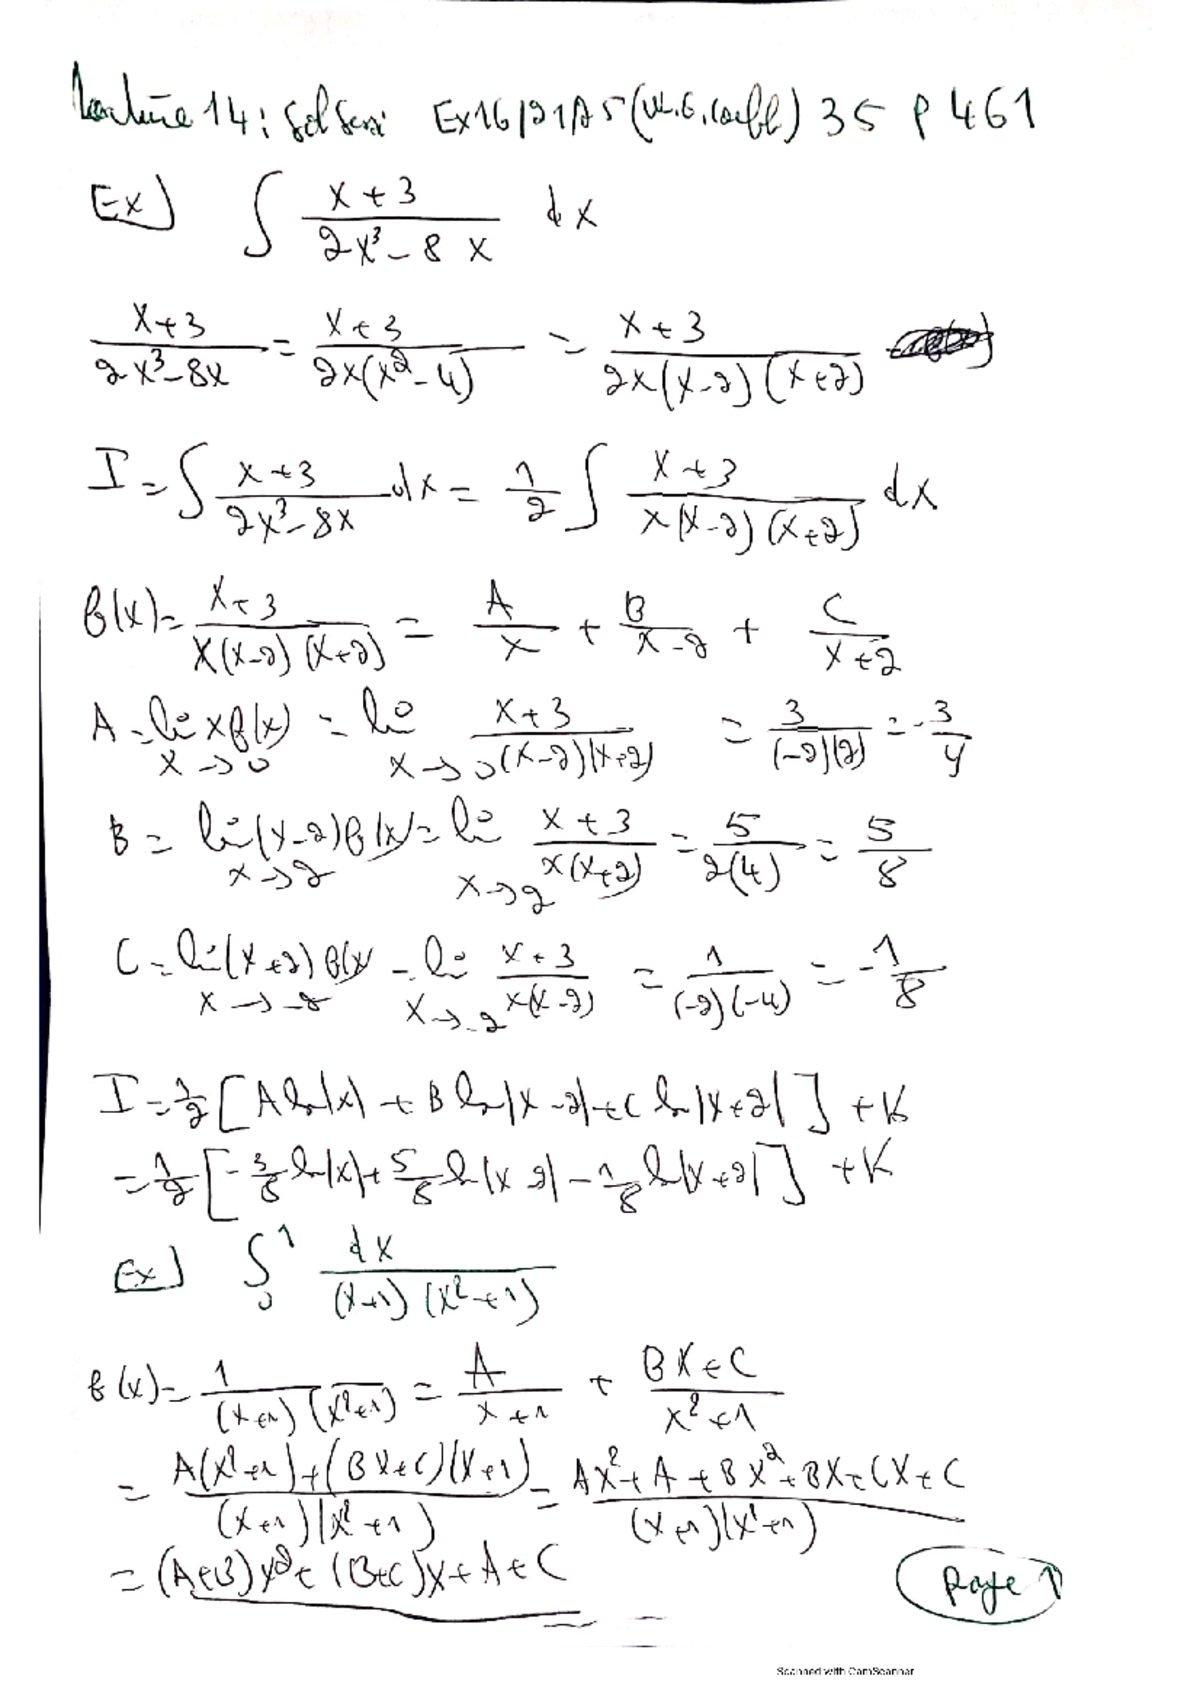 Lecture 14: Ex 16/21/25 (W.G. coeff) 35 P 461
Ex) ∫ (x+3)/(2x³-8x) dx
(x+3)/(2x³-8x) = (x+3)/(2x(x²-4)) = (x+3)/(2x(x-2)(x+2))
I = ∫ (x+3)/(2x³-8x) dx = 1/2 ∫ (x+3)/(x(x-2)(x+2)) dx
f(x) = (x+3)/(x(x-2)(x+2)) = A/x + B/(x-2) + C/(x+2)
A = lim x→0 x f(x) = lim x→0 (x+3)/((x-2)(x+2)) = 3/((-2)(2)) = -3/4
B = lim x→2 (x-2) f(x) = lim x→2 (x+3)/(x(x+2)) = 5/(2(4)) = 5/8
C = lim x→-2 (x+2) f(x) = lim x→-2 (x+3)/(x(x-2)) = 1/((-2)(-4)) = -1/8
I = 1/2 [A ln|x| + B ln|x-2| + C ln|x+2|] + K
= 1/2 [-3/8 ln|x| + 5/8 ln|x-2| - 1/8 ln|x+2|] + K
Ex) ∫₀¹ dx/((x+1)(x²+1))
f(x) = 1/((x+1)(x²+1)) = A/(x+1) + (Bx+C)/(x²+1)
= (A(x²+1)+(Bx+C)(x+1))/((x+1)(x²+1)) = (Ax²+A+Bx²+Bx+Cx+C)/((x+1)(x²+1))
= (A+B)x²+(B+C)x+A+C
Page 1
Scanned with CamScanner